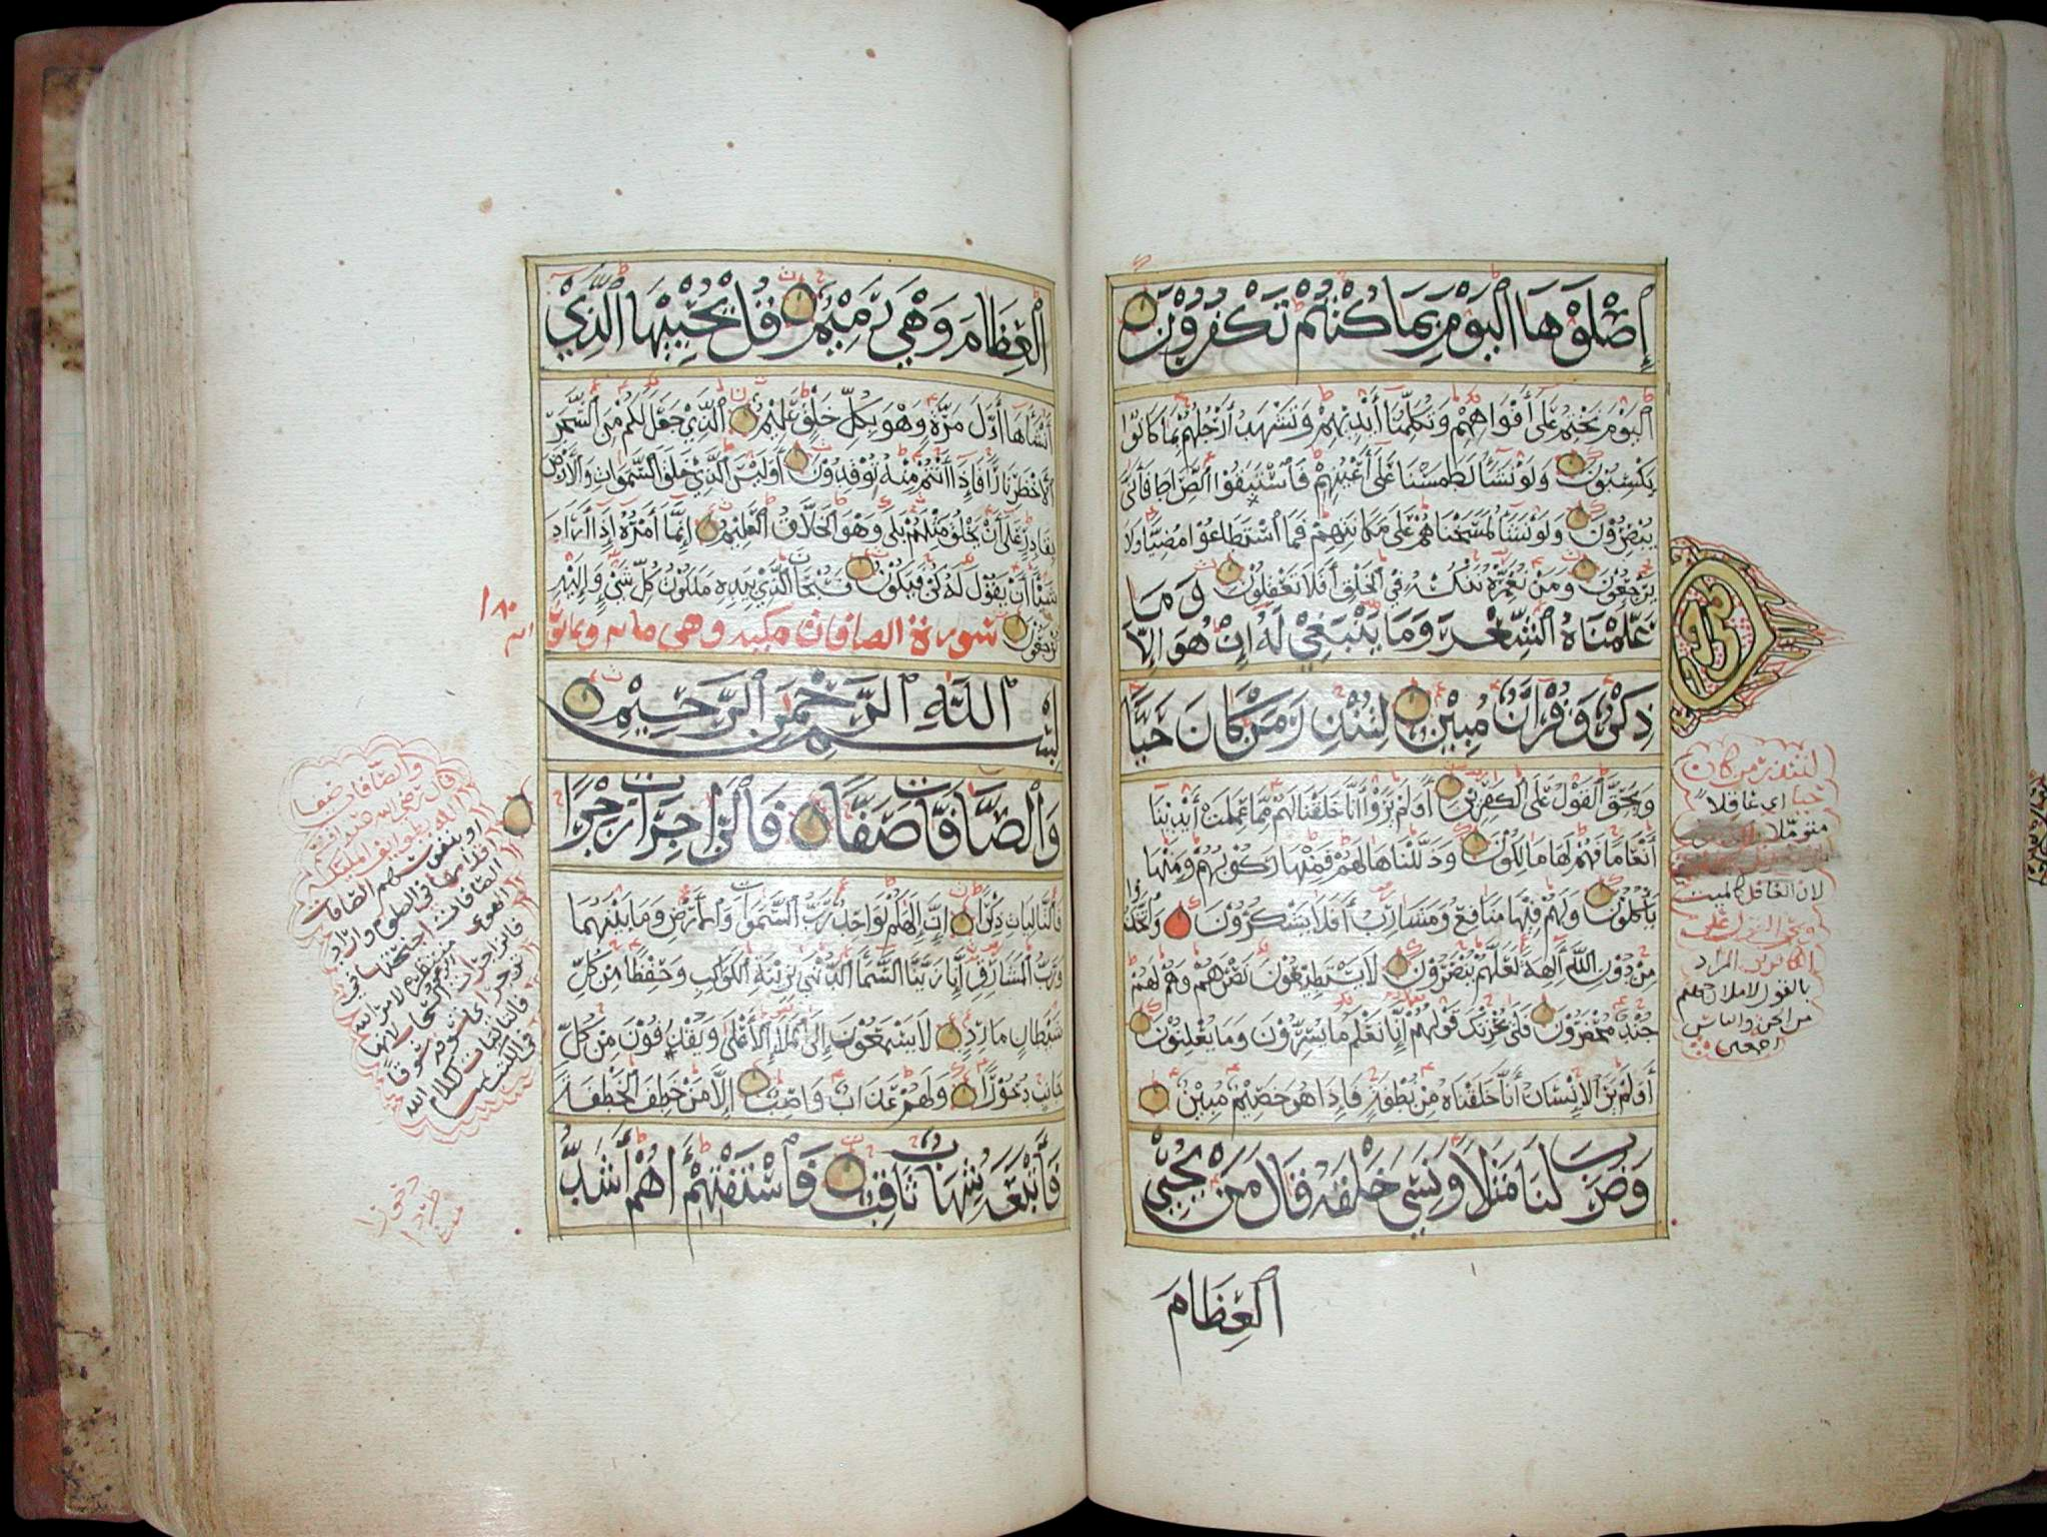 إِصْلَوْهَا الْيَوْمَ بِمَا كُنْتُمْ تَكْفُرُوْنَ
الْيَوْمَ نَخْتِمُ عَلَى أَفْوَاهِهِمْ وَتُكَلِّمُنَا أَيْدِيْهِمْ وَتَشْهَدُ أَرْجُلُهُمْ بِمَا كَانُوْا
يَكْسِبُوْنَ وَلَوْ نَشَآءُ لَطَمَسْنَا عَلَى أَعْيُنِهِمْ فَاسْتَبَقُوْا الصِّرَاطَ فَأَنَّى
يُبْصِرُوْنَ وَلَوْ نَشَآءُ لَمَسَخْنَاهُمْ عَلَى مَكَانَتِهِمْ فَمَا اسْتَطَاعُوْا مُضِيًّا وَلَا
يَرْجِعُوْنَ وَمَنْ نُعَمِّرْهُ نُنَكِّسْهُ فِي الْخَلْقِ أَفَلَا تَعْقِلُوْنَ وَمَا
عَلَّمْنَاهُ الشِّعْرَ وَمَا يَنْبَغِيْ لَهُ إِنْ هُوَ إِلَّا
ذِكْرٌ وَقُرْآنٌ مُبِيْنٌ لِتُنْذِرَ مَنْ كَانَ حَيًّا
وَيَحِقَّ الْقَوْلُ عَلَى الْكَفِرِيْنَ أَوَلَمْ يَرَوْا أَنَّا خَلَقْنَا لَهُمْ مِمَّا عَمِلَتْ أَيْدِيْنَا
أَنْعَامًا فَهُمْ لَهَا مَالِكُوْنَ وَذَلَّلْنَاهَا لَهُمْ فَمِنْهَا رَكُوْبُهُمْ وَمِنْهَا
يَأْكُلُوْنَ وَلَهُمْ فِيْهَا مَنَافِعُ وَمَشَارِبُ أَفَلَا يَشْكُرُوْنَ وَاتَّخَذُوا
مِنْ دُوْنِ اللَّهِ آلِهَةً لَعَلَّهُمْ يُنْصَرُوْنَ لَا يَسْتَطِيْعُوْنَ نَصْرَهُمْ وَهُمْ لَهُمْ
جُنْدٌ مُحْضَرُوْنَ فَلَا يَحْزُنْكَ قَوْلُهُمْ إِنَّا نَعْلَمُ مَا يُسِرُّوْنَ وَمَا يُعْلِنُوْنَ
أَوَلَمْ يَرَ الْإِنْسَانُ أَنَّا خَلَقْنَاهُ مِنْ نُطْفَةٍ فَإِذَا هُوَ خَصِيْمٌ مُبِيْنٌ
وَضَرَبَ لَنَا مَثَلًا وَنَسِيَ خَلْقَهُ قَالَ مَنْ يُحْيِي
الْعِظَامَ
لتنذر من كان
حيا اي غافلا
لان الغافل كالميت
ويحق القول على
الكافرين المراد
بالقول لاملان جهنم
من الجن والناس
اجمعين
الْعِظَامَ وَهْيَ رَمِيْمٌ قُلْ يُحْيِيْهَا الَّذِيْ
أَنْشَأَهَا أَوَّلَ مَرَّةٍ وَهْوَ بِكُلِّ خَلْقٍ عَلِيْمٌ الَّذِيْ جَعَلَ لَكُمْ مِنَ الشَّجَرِ
الْأَخْضَرِ نَارًا فَإِذَا أَنْتُمْ مِنْهُ تُوْقِدُوْنَ أَوَلَيْسَ الَّذِيْ خَلَقَ السَّمَوَاتِ وَالْأَرْضَ
بِقَادِرٍ عَلَى أَنْ يَخْلُقَ مِثْلَهُمْ بَلَى وَهْوَ الْخَلَّاقُ الْعَلِيْمُ إِنَّمَا أَمْرُهُ إِذَا أَرَادَ
شَيْئًا أَنْ يَقُوْلَ لَهُ كُنْ فَيَكُوْنُ فَسُبْحَانَ الَّذِيْ بِيَدِهِ مَلَكُوْتُ كُلِّ شَيْءٍ وَإِلَيْهِ
تُرْجَعُوْنَ سورة الصافات مكيه وهي مايه وثمانون
١٨٠
ايه
بِسْمِ اللَّهِ الرَّحْمَنِ الرَّحِيْمِ
وَالصَّافَّاتِ صَفًّا فَالزَّاجِرَاتِ زَجْرًا
فَالتَّالِيَاتِ ذِكْرًا إِنَّ إِلَهَكُمْ لَوَاحِدٌ رَبُّ السَّمَوَاتِ وَالْأَرْضِ وَمَا بَيْنَهُمَا
وَرَبُّ الْمَشَارِقِ إِنَّا زَيَّنَّا السَّمَآءَ الدُّنْيَا بِزِيْنَةِ الْكَوَاكِبِ وَحِفْظًا مِنْ كُلِّ
شَيْطَانٍ مَارِدٍ لَا يَسْمَعُوْنَ إِلَى الْمَلَإِ الْأَعْلَى وَيُقْذَفُوْنَ مِنْ كُلِّ
جَانِبٍ دُحُوْرًا وَلَهُمْ عَذَابٌ وَاصِبٌ إِلَّا مَنْ خَطِفَ الْخَطْفَةَ
فَأَتْبَعَهُ شِهَابٌ ثَاقِبٌ فَاسْتَفْتِهِمْ أَهُمْ أَشَدُّ
والصافات صفا